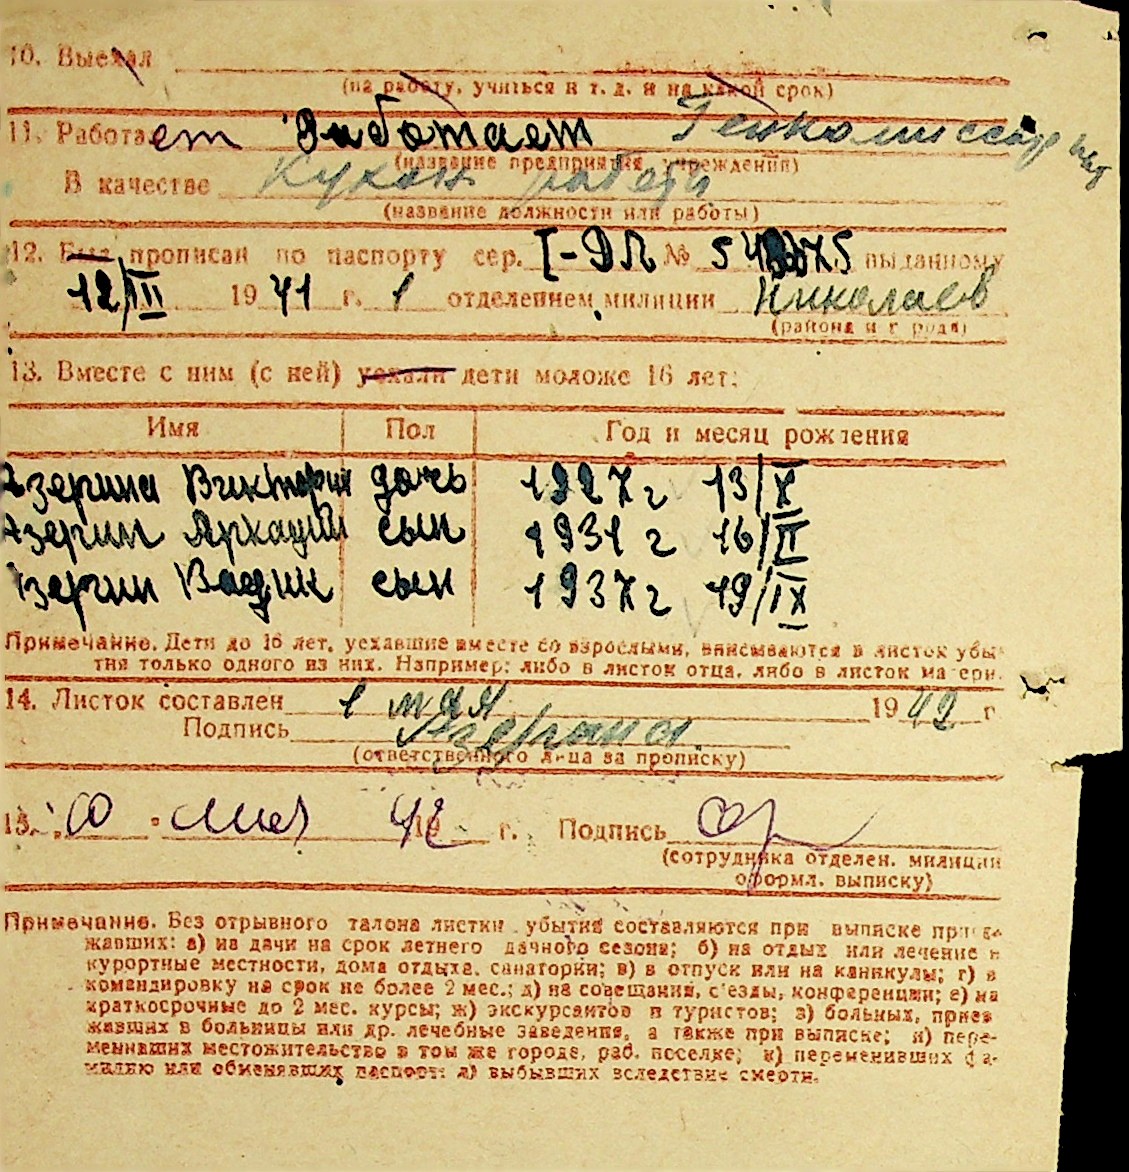 10. Выехал
(на работу, учиться и т. д. и на какой срок)
11. Работает Работает Генкомиссариат
(название предприятия, учреждения)
В качестве Кухон. работн.
(название должности или работы)
12. Был прописан по паспорту сер. I-ДЛ № выданному
12/III 1941 г. 1 отделением милиции Николаев
(района и города)
13. Вместе с ним (с ней) уехали дети моложе 16 лет:
Имя Пол Год и месяц рождения
Азерина Виктория дочь 1927 г 13/X
Азерин Аркадий сын 1931 г 16/II
Азерин Вадик сын 1937 г 19/IX
Примечание. Дети до 16 лет, уехавшие вместе со взрослыми, вписываются в листок убы-
тия только одного из них. Например: либо в листок отца, либо в листок матери.
14. Листок составлен 1 мая 1942 г
Подпись Азерина
(ответственного лица за прописку)
15. мая 42 19 г. Подпись
(сотрудника отделен. милиции
оформл. выписку)
Примечание. Без отрывного талона листки убытия составляются при выписке приез-
жавших: а) на дачи на срок летнего дачного сезона; б) на отдых или лечение в
курортные местности, дома отдыха, санатории; в) в отпуск или на каникулы; г) в
командировку на срок не более 2 мес.; д) на совещания, с'езды, конференции; е) на
краткосрочные до 2 мес. курсы; ж) экскурсантов и туристов; з) больных, приез-
жавших в больницы или др. лечебные заведения, а также при выписке; и) пере-
менивших местожительство в том же городе, раб. поселке; к) переменивших фа-
милию или обменявших паспорт; л) выбывших вследствие смерти.